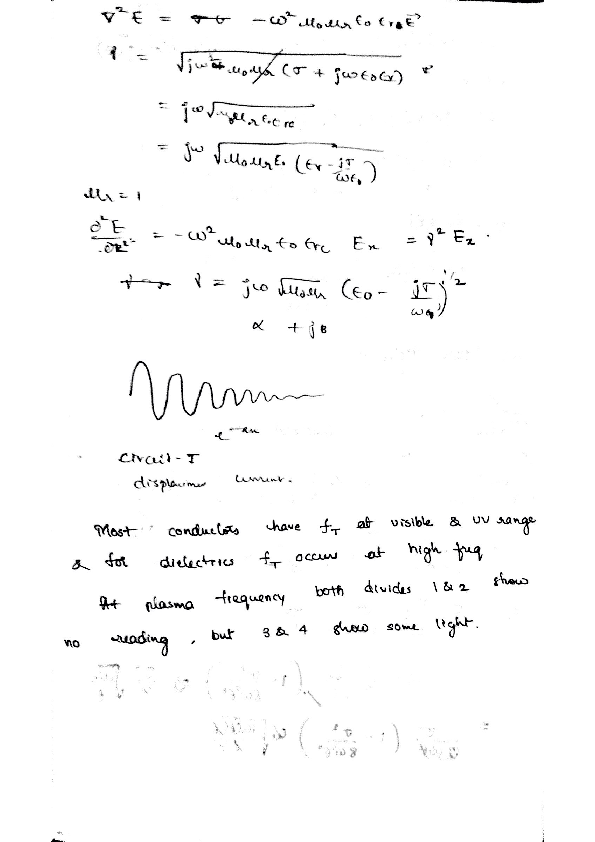 ∇²E = -ω² μ₀μᵣ ε₀ εᵣc E
γ = √(jω μ₀μᵣ (σ + jωε₀εᵣ))
= jω√(μ₀μᵣ ε₀εrc)
= jω √(μ₀μᵣε₀ (εᵣ - jσ/ωε₀))
μᵣ = 1
∂²E/∂z² = -ω² μ₀μᵣ ε₀ εrc Eₓ = γ² Eₓ .
γ = jω √μ₀μᵣ (ε₀ - jσ/ωε₀)^1/2
α + jβ
circuit - I
displacement current.
Most conductors have f_T at visible & UV range
& for dielectrics f_T occurs at high freq
At plasma frequency both divides 1 & 2 show
no reading, but 3 & 4 show some light.